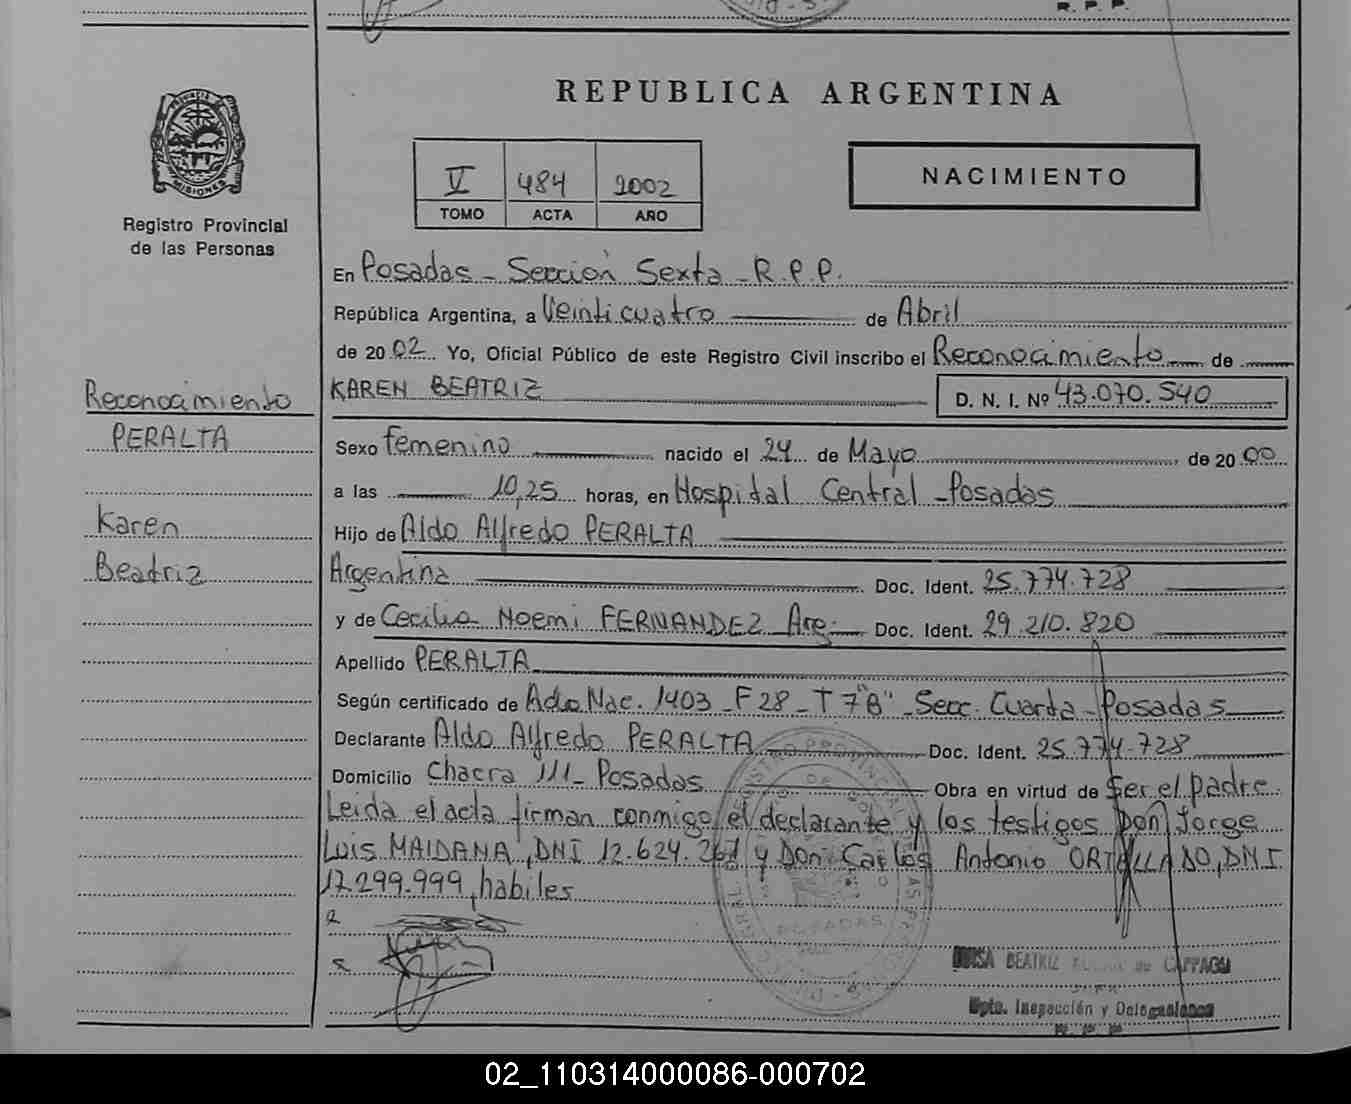 R. P. P.
REPUBLICA ARGENTINA
PROVINCIA DE MISIONES
Registro Provincial
de las Personas
V 484 2002
TOMO ACTA AÑO
NACIMIENTO
En Posadas - Sección Sexta - R.P.P.
República Argentina, a Veinticuatro de Abril
de 2002 Yo, Oficial Público de este Registro Civil inscribo el Reconocimiento de
KAREN BEATRIZ D. N. I. Nº 43.070.540
Reconocimiento
PERALTA
Karen
Beatriz
Sexo femenino nacido el 24 de Mayo de 2000
a las 10,25 horas, en Hospital Central - Posadas
Hijo de Aldo Alfredo PERALTA
Argentina Doc. Ident. 25.774.728
y de Cecilia Noemi FERNANDEZ Arg. Doc. Ident. 29.210.820
Apellido PERALTA
Según certificado de Acta Nac. 1403 - F 28 - T 7"B" - Secc. Cuarta - Posadas
Declarante Aldo Alfredo PERALTA Doc. Ident. 25.774.728
Domicilio Chacra 111 - Posadas Obra en virtud de Ser el padre.
Leida el acta firman conmigo el declarante y los testigos Don Jorge
Luis MAIDANA, DNI 12.624.261 y Don Carlos Antonio ORTELLADO, DNI
17.299.999, habiles
BEATRIZ de
Dpto. Inspección y Delegaciones
R. P. P.
02_110314000086-000702